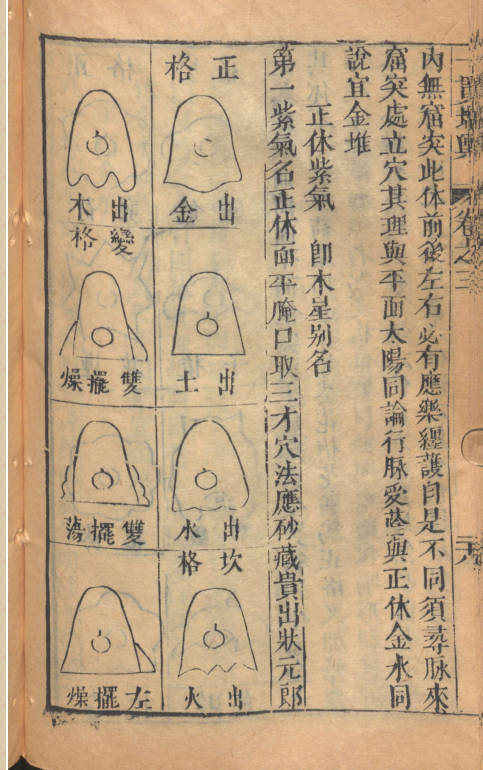 一貫堪輿 卷之三
內無窟突此体前後左右必有應樂纏護自是不同須尋脉來
窟突處立穴其理與平面太陽同論行脉受葢與正体金水同
說宜金堆
正体紫氣 即木星别名
第一紫氣名正体面平庵口取三才穴法應砂藏貴出狀元郎
正格
出金
出木
變格
出土
雙擺燥
出水
雙擺蕩
坎格
出火
左擺燥